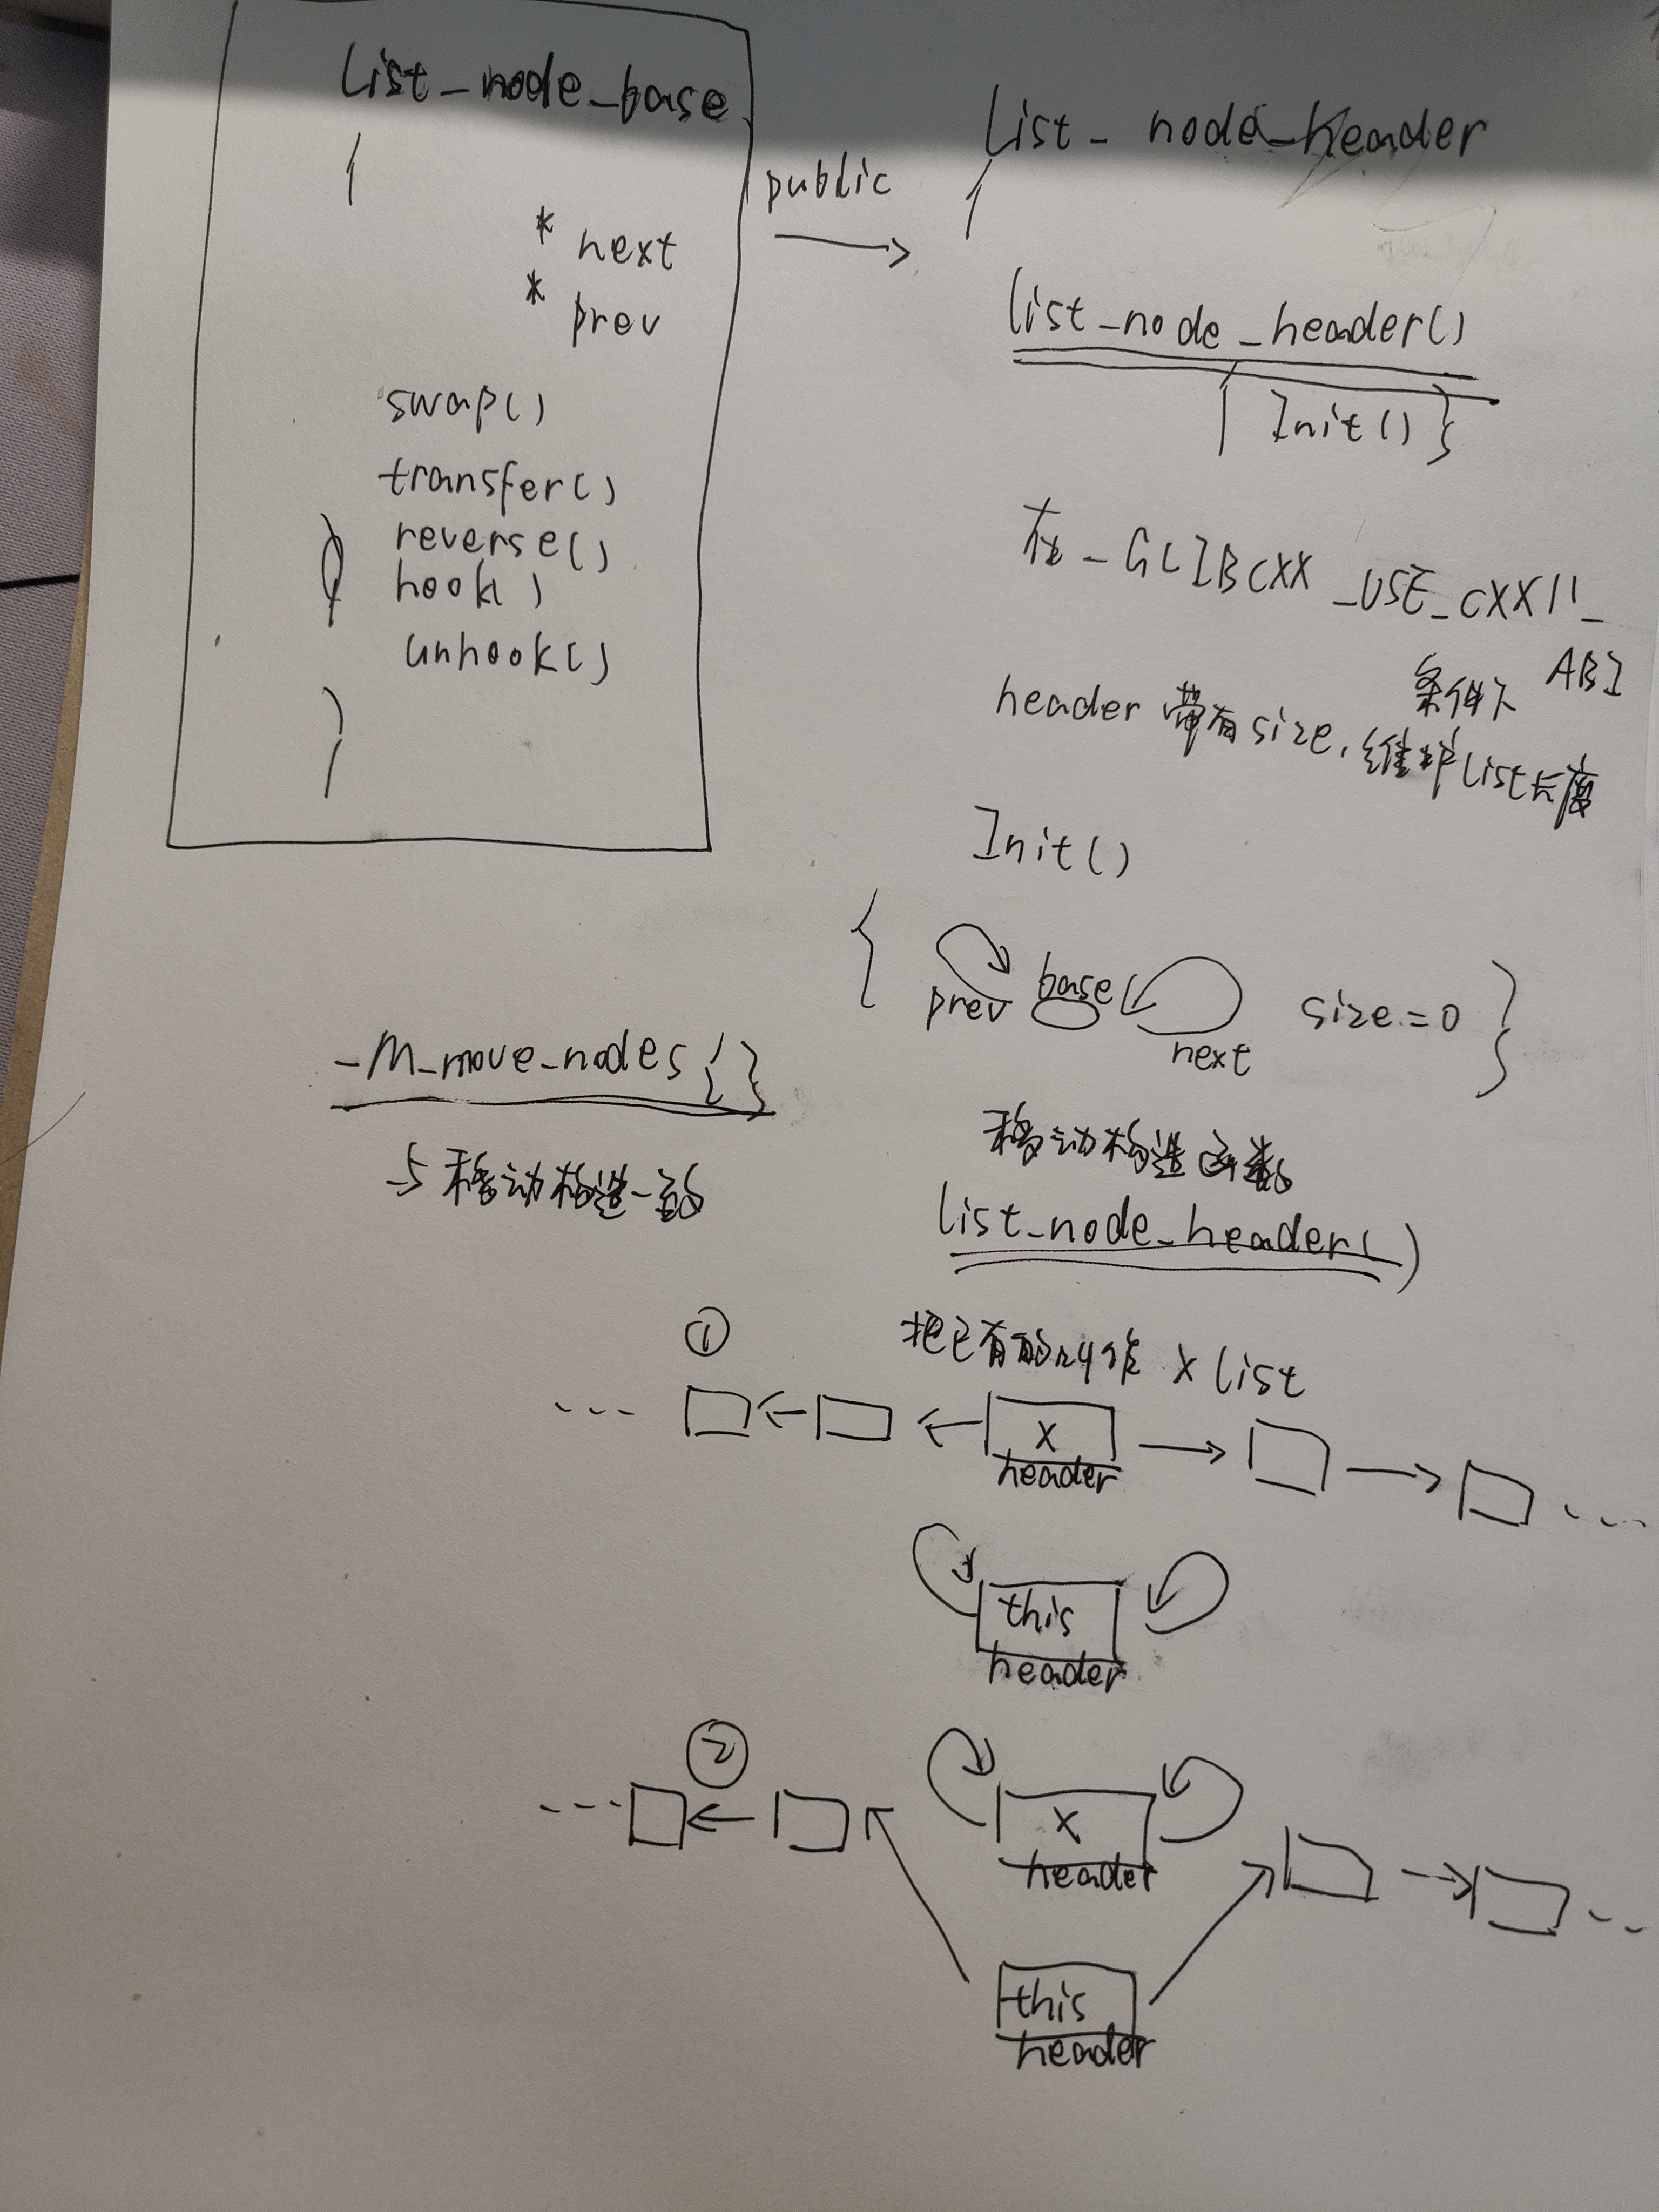 list_node_base
{
* next
* prev
swap()
transfer()
reverse()
hook()
unhook()
}
public
list_node_header
{
list_node_header()
{ Init() }
在_GLIBCXX_USE_CXX11_
ABI
条件下
header 带有size,维护list长度
Init()
{
prev base
next
size = 0 }
_M_move_nodes{}
与移动构造一致
移动构造函数
list_node_header()
①
把已有的叫作 x list
... x ...
header
this
header
②
... x ...
header
this
header